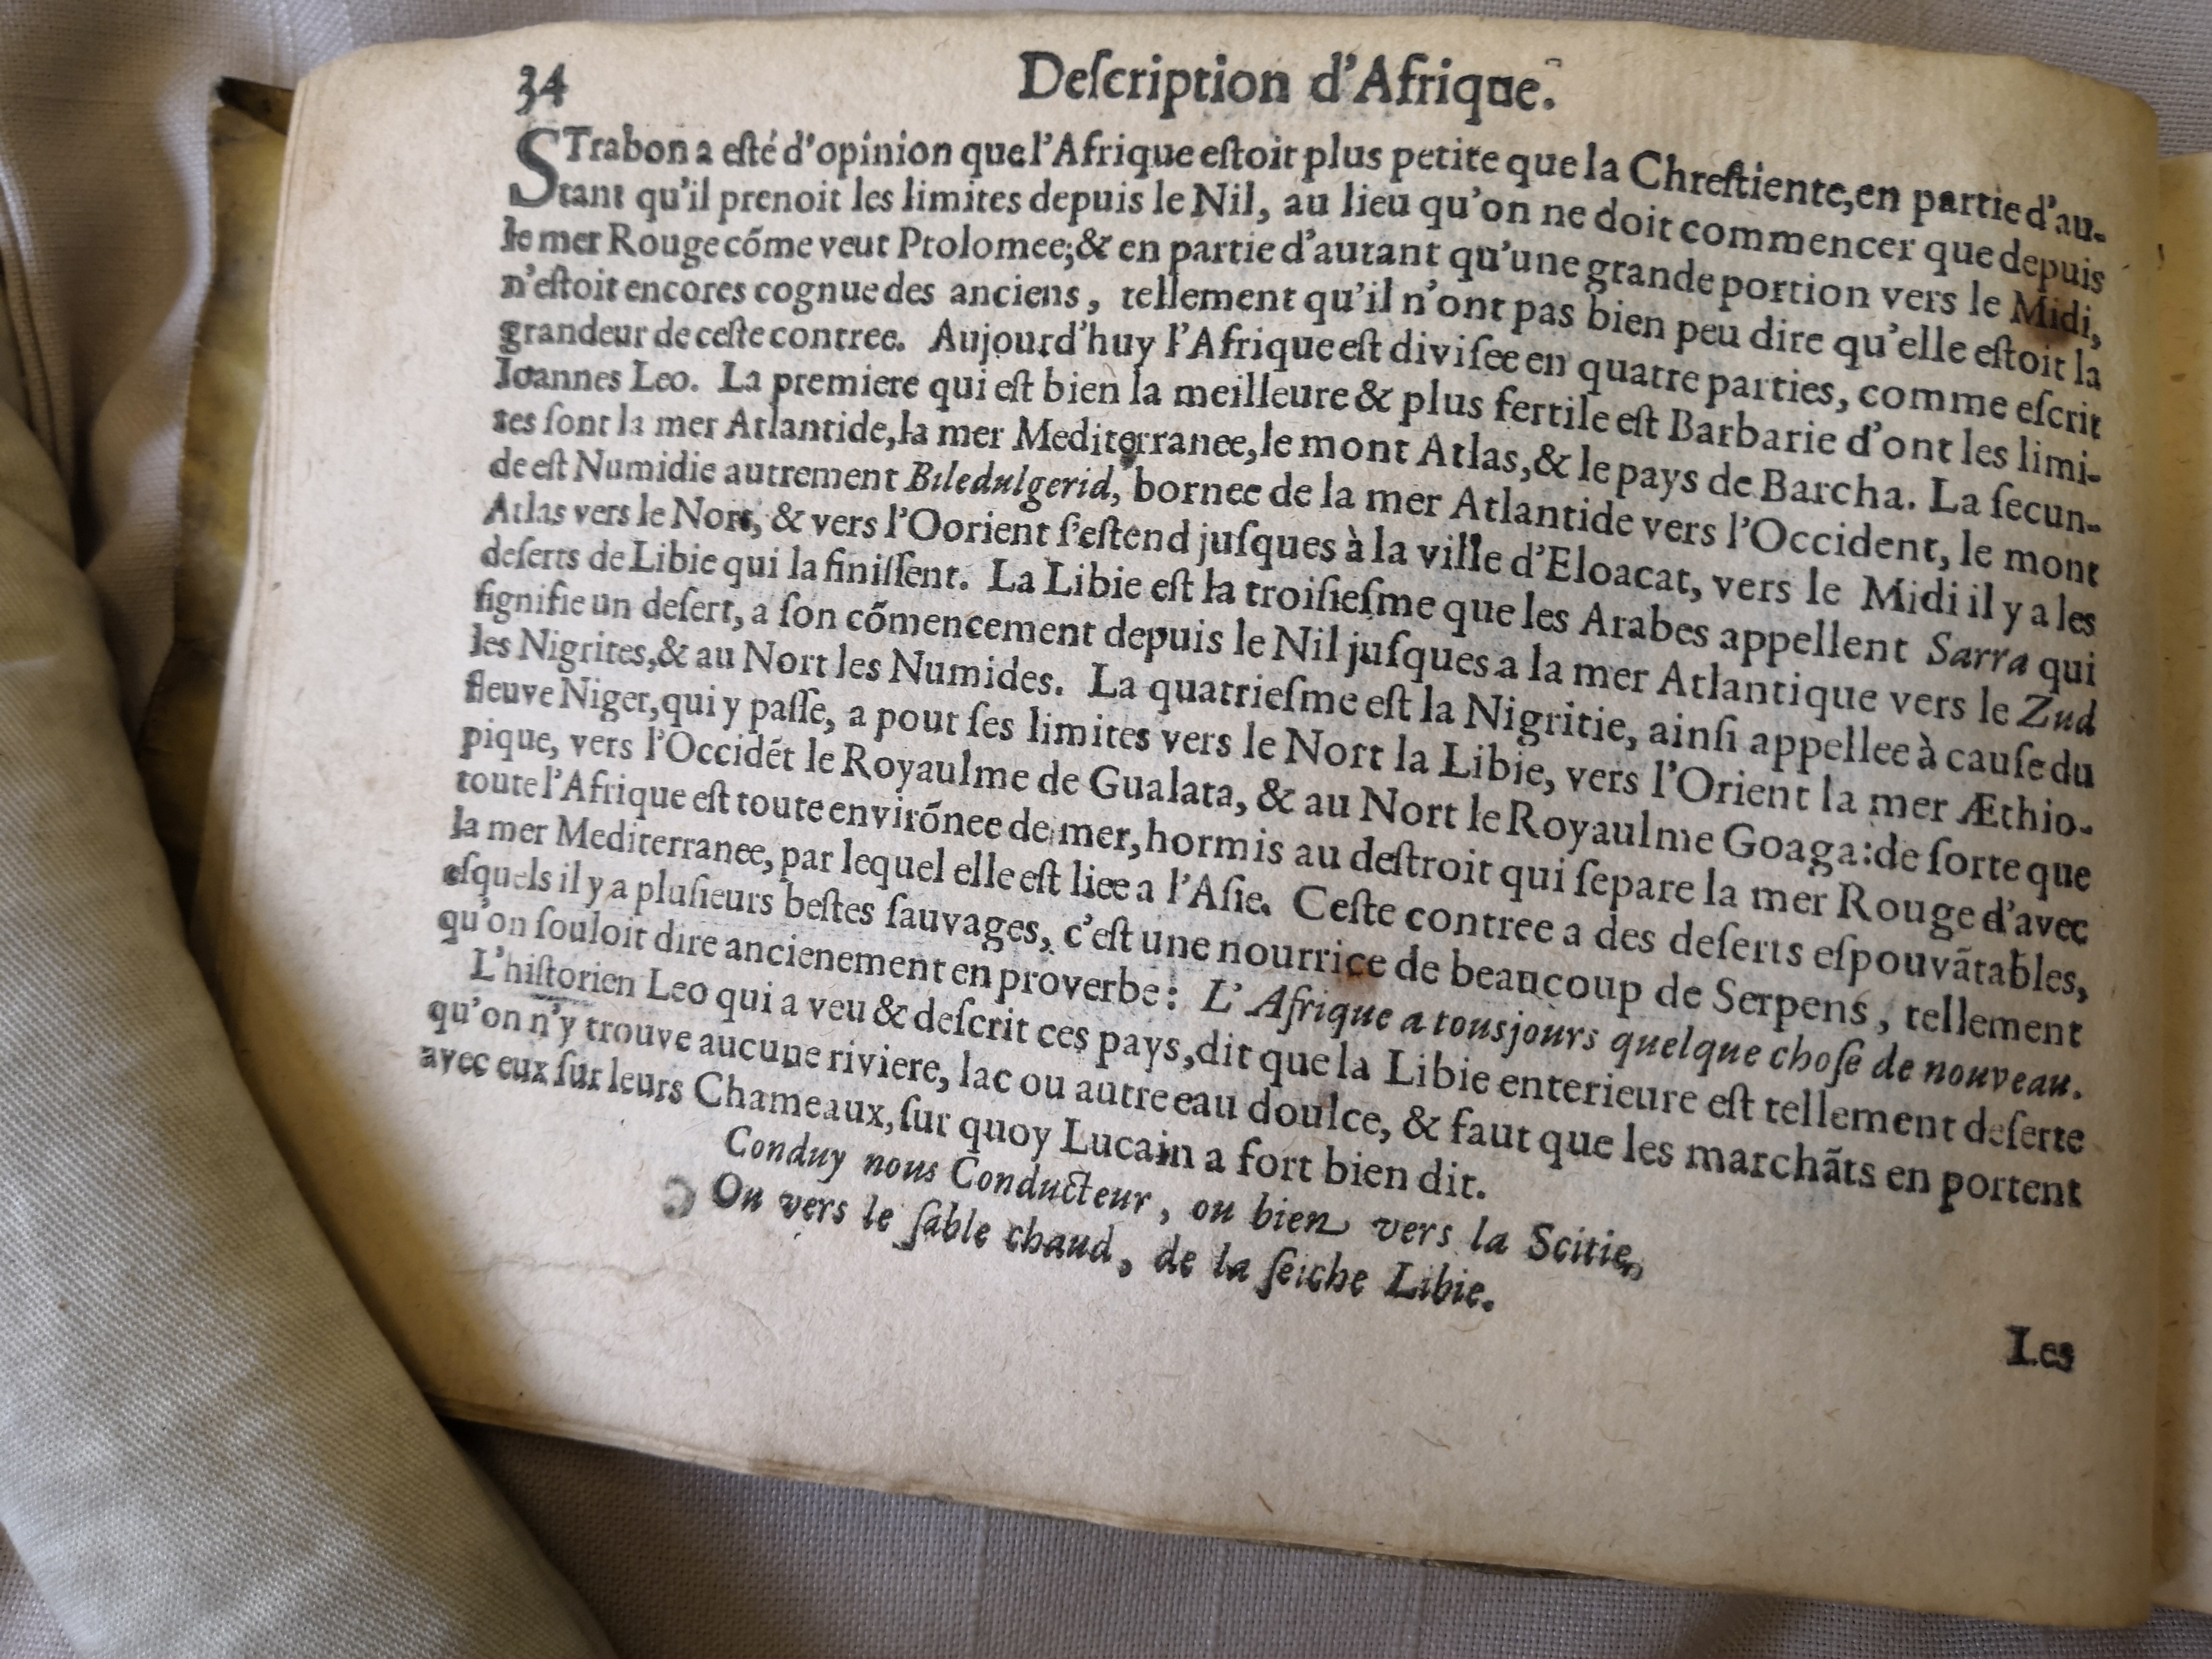 34 Deſcription d'Afrique.
STrabon a eſté d'opinion que l'Afrique eſtoit plus petite que la Chreſtiente, en partie d'au-
tant qu'il prenoit les limites depuis le Nil, au lieu qu'on ne doit commencer que depuis
le mer Rouge cõme veut Ptolomee; & en partie d'autant qu'une grande portion vers le Midi,
n'eſtoit encores cognue des anciens, tellement qu'il n'ont pas bien peu dire qu'elle eſtoit la
grandeur de ceſte contree. Aujourd'huy l'Afrique eſt diviſee en quatre parties, comme eſcrit
Ioannes Leo. La premiere qui eſt bien la meilleure & plus fertile eſt Barbarie d'ont les limi-
tes ſont la mer Atlantide, la mer Mediterranee, le mont Atlas, & le pays de Barcha. La ſecun-
de eſt Numidie autrement Biledulgerid, bornee de la mer Atlantide vers l'Occident, le mont
Atlas vers le Nort, & vers l'Oorient ſ'eſtend juſques à la ville d'Eloacat, vers le Midi il y a les
deſerts de Libie qui la finiſſent. La Libie eſt la troiſieſme que les Arabes appellent Sarra qui
ſignifie un deſert, a ſon cõmencement depuis le Nil juſques a la mer Atlantique vers le Zud
les Nigrites, & au Nort les Numides. La quatrieſme eſt la Nigritie, ainſi appellee à cauſe du
fleuve Niger, qui y paſſe, a pour ſes limites vers le Nort la Libie, vers l'Orient la mer Æthio-
pique, vers l'Occidẽt le Royaulme de Gualata, & au Nort le Royaulme Goaga: de ſorte que
toute l'Afrique eſt toute envirõnee de mer, hormis au deſtroit qui ſepare la mer Rouge d'avec
la mer Mediterranee, par lequel elle eſt liee a l'Aſie. Ceſte contree a des deſerts eſpouvãtables,
eſquels il y a pluſieurs beſtes ſauvages, c'eſt une nourrice de beaucoup de Serpens, tellement
qu'on ſouloit dire ancienement en proverbe: L'Afrique a tousjours quelque choſe de nouveau.
L'hiſtorien Leo qui a veu & deſcrit ces pays, dit que la Libie enterieure eſt tellement deſerte
qu'on n'y trouve aucune riviere, lac ou autre eau doulce, & faut que les marchãts en portent
avec eux ſur leurs Chameaux, ſur quoy Lucain a fort bien dit.
Conduy nous Conducteur, ou bien vers la Scitie,
Ou vers le ſable chaud, de la ſeiche Libie.
Les